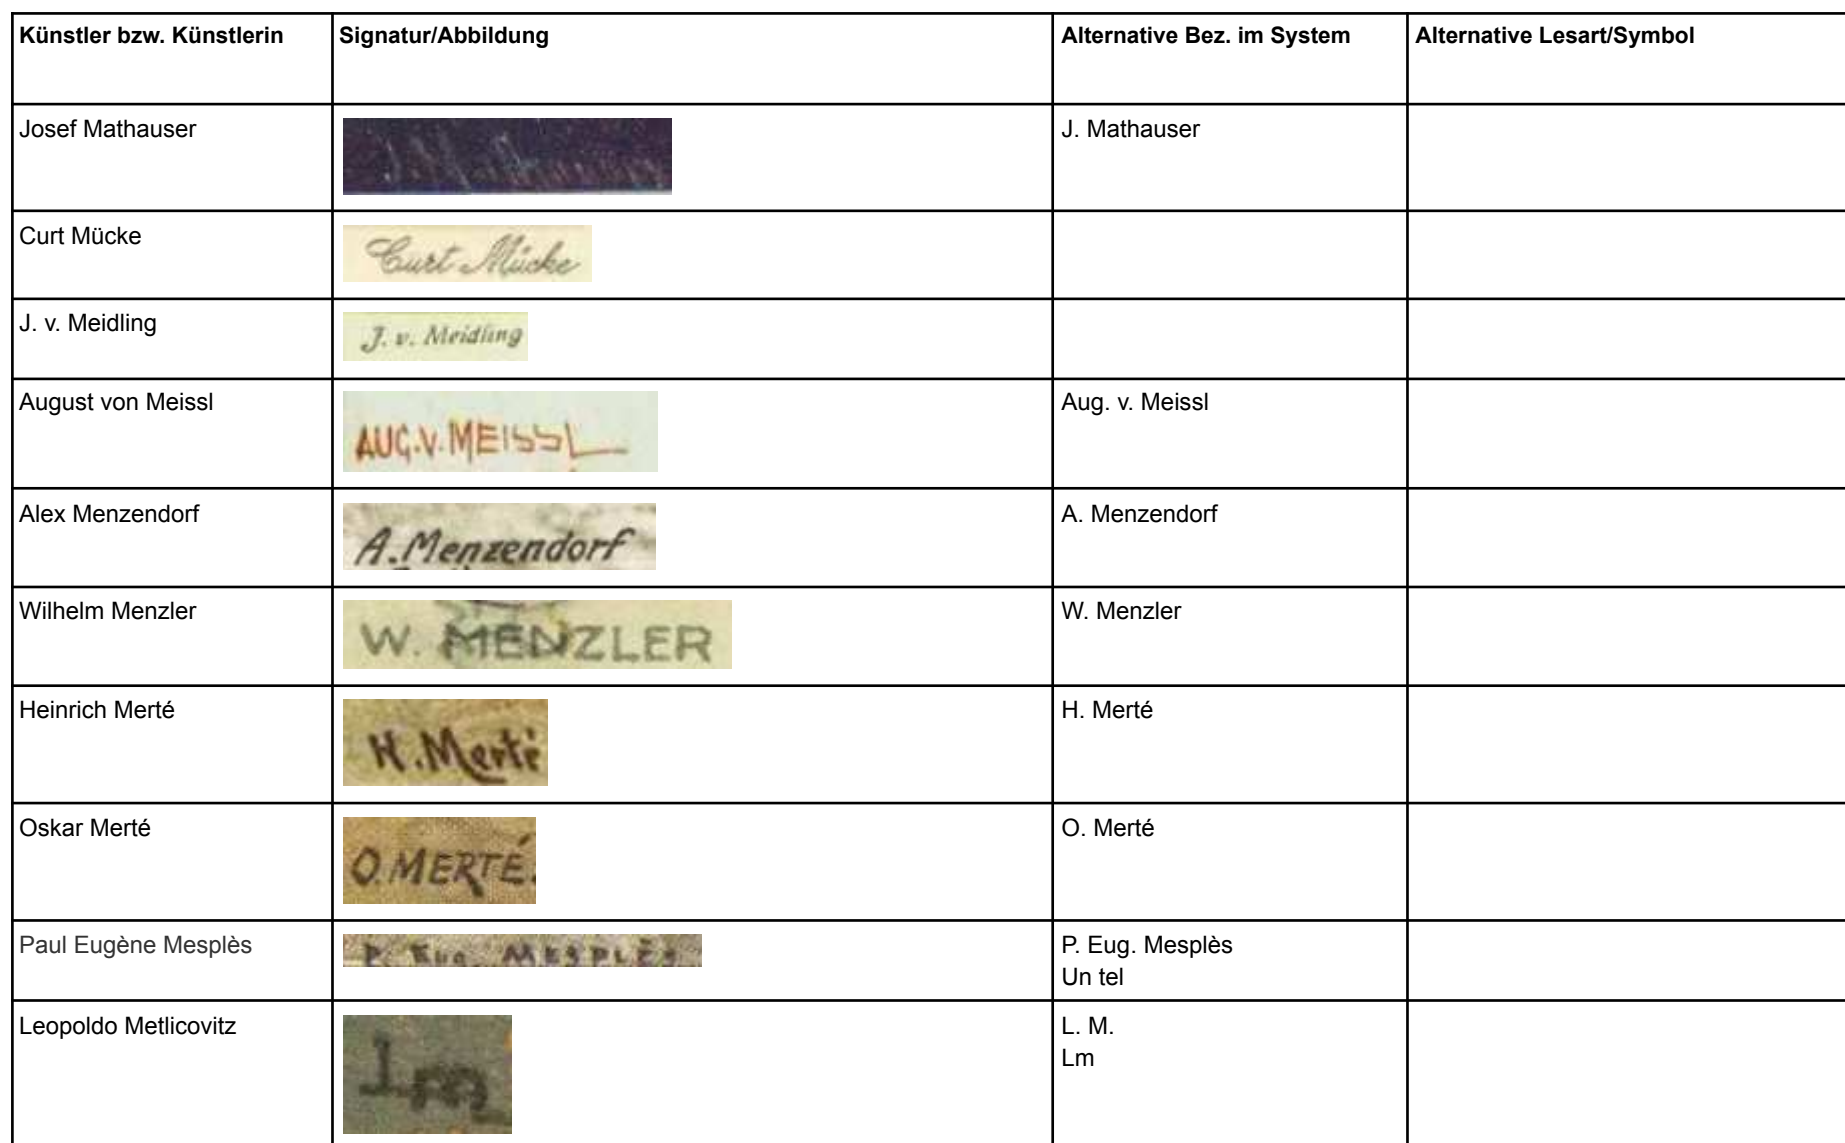 Künstler bzw. Künstlerin Signatur/Abbildung Alternative Bez. im System Alternative Lesart/Symbol
Josef Mathauser J. Mathauser
Curt Mücke Curt Mücke
J. v. Meidling J. v. Meidling
August von Meissl AUG. V. MEISSL Aug. v. Meissl
Alex Menzendorf A. Menzendorf A. Menzendorf
Wilhelm Menzler W. MENZLER W. Menzler
Heinrich Merté H. Merté H. Merté
Oskar Merté O. MERTÉ. O. Merté
Paul Eugène Mesplès P. EUG. MESPLÈS P. Eug. Mesplès
Un tel
Leopoldo Metlicovitz Lm L. M.
Lm